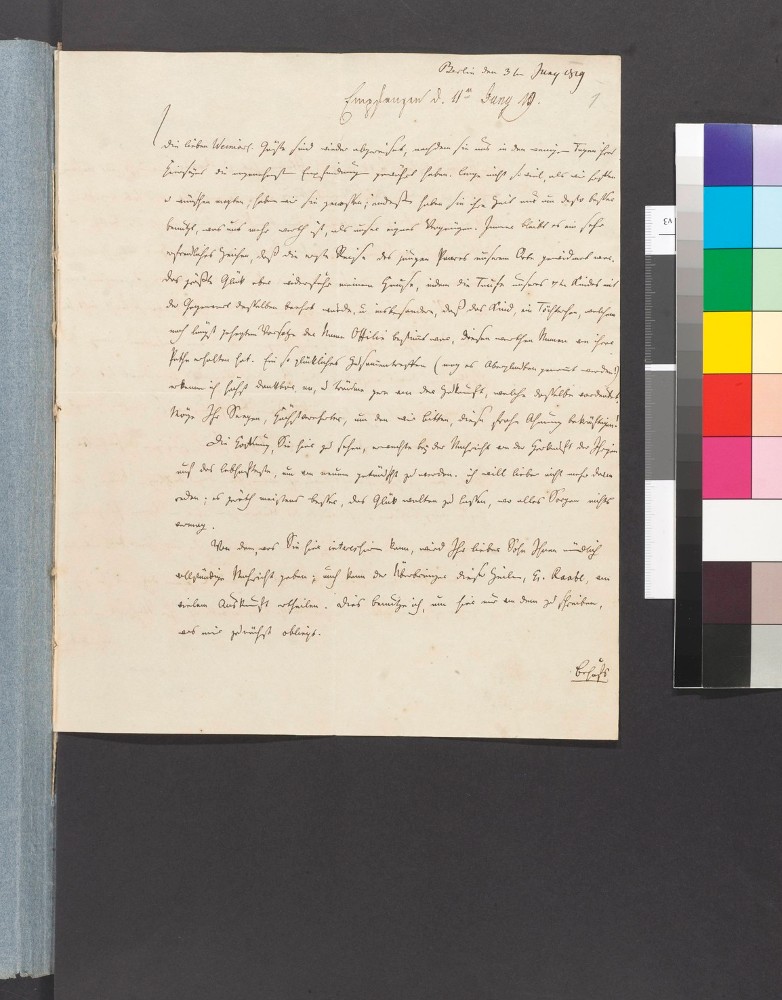 Berlin den 3ten Juny 1819
Empfangen d. 11ten Juny 19.
1
Die lieben Weimar. Gäste sind wieder abgereiset, nachdem sie uns in den wenigen Tagen ihres
Hierseyns die angenehmsten Empfindungen gewährt haben. Lange nicht so viel, als wir hofften
u wünschen mogten, haben wir sie genossen; indessen haben sie ihre Zeit nur um desto besser
benutzt, was uns mehr werth ist, als unser eignes Vergnügen. Immer bleibt es ein sehr
erfreuliches Zeichen, daß die erste Reise des jungen Paares unserem Orte gewidmet war.
Das größte Glük aber widerfuhr meinem Hause, indem die Taufe unseres 7ten Kindes mit
der Gegenwart desselben beehrt wurde, u insbesondere, daß das Kind, ein Töchterchen, welchem
nach längst gehegtem Vorsatze der Name Ottilie bestimmt war, diesen werthen Namen von ihrer
Pathe erhalten hat. Ein so glükliches Zusammentreffen (mag es Aberglauben genannt werden!)
erkenne ich höchst dankbar an, u träume gern von der Zukunft, welche dasselbe vordeutet.
Möge Ihr Seegen, Hochverehrter, um den wir bitten, diese frohe Ahnung bekräftigen!
Die Hoffnung, Sie hier zu sehen, erwachte bey der Nachricht von der Herkunft der Ihrigen
auf das lebhafteste, um von neuem getäuscht zu werden. Ich will lieber nicht mehr davon
reden; es geräth meistens besser, das Glük walten zu lassen, wo alles Sorgen nichts
vermag.
Von dem, was Sie hier interessiren kann, wird Ihr lieber Sohn Ihnen mündlich
vollständige Nachricht geben; auch kann der Überbringer dieser Zeilen, H. Raabe, von
vielem Auskunft ertheilen. Dies benutze ich, um hier nur von dem zu schreiben,
was mir zunächst obliegt.
Behufs